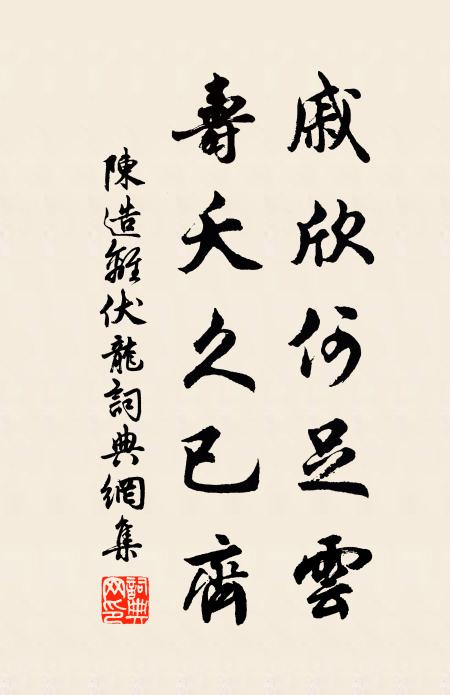 戚欣何足雲
壽夭久已齊
陳造離伏龍詞典網集
詞典網印